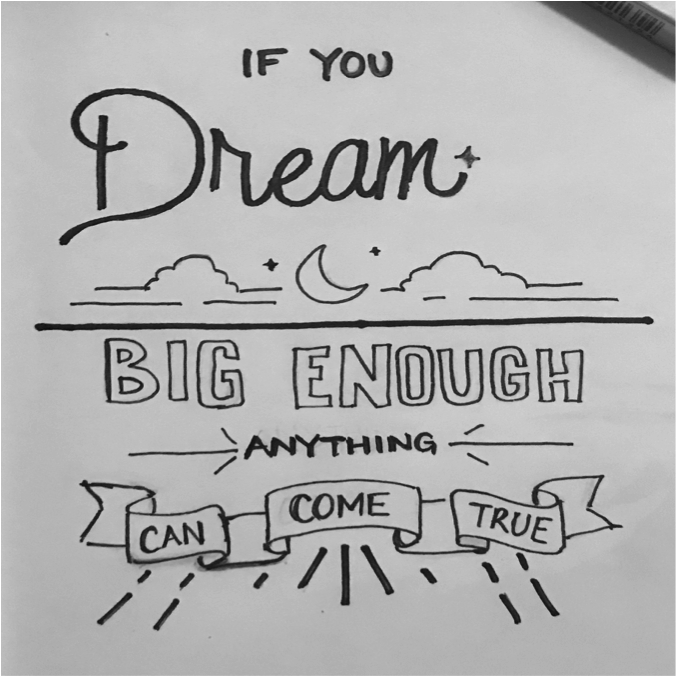 IF YOU
Dream
BIG ENOUGH
ANYTHING
CAN COME TRUE